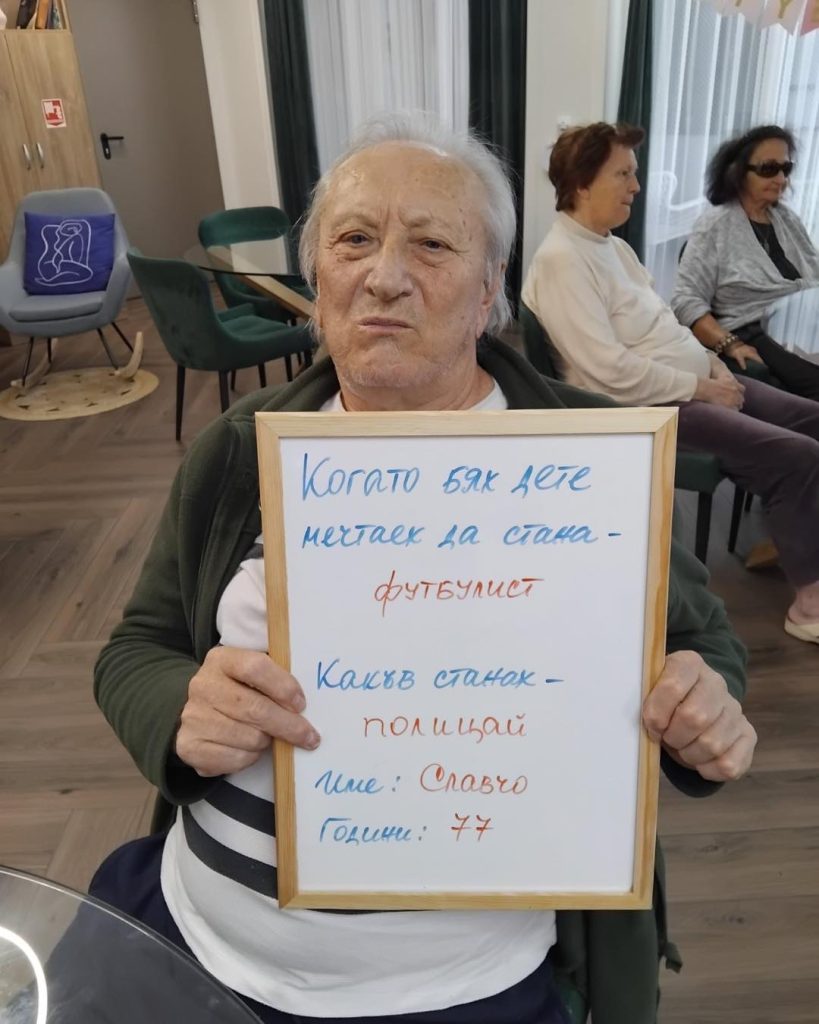 Когато бях дете
мечтаех да стана -
футбулист
Какъв станах -
полицай
Име: Славчо
Години: 77